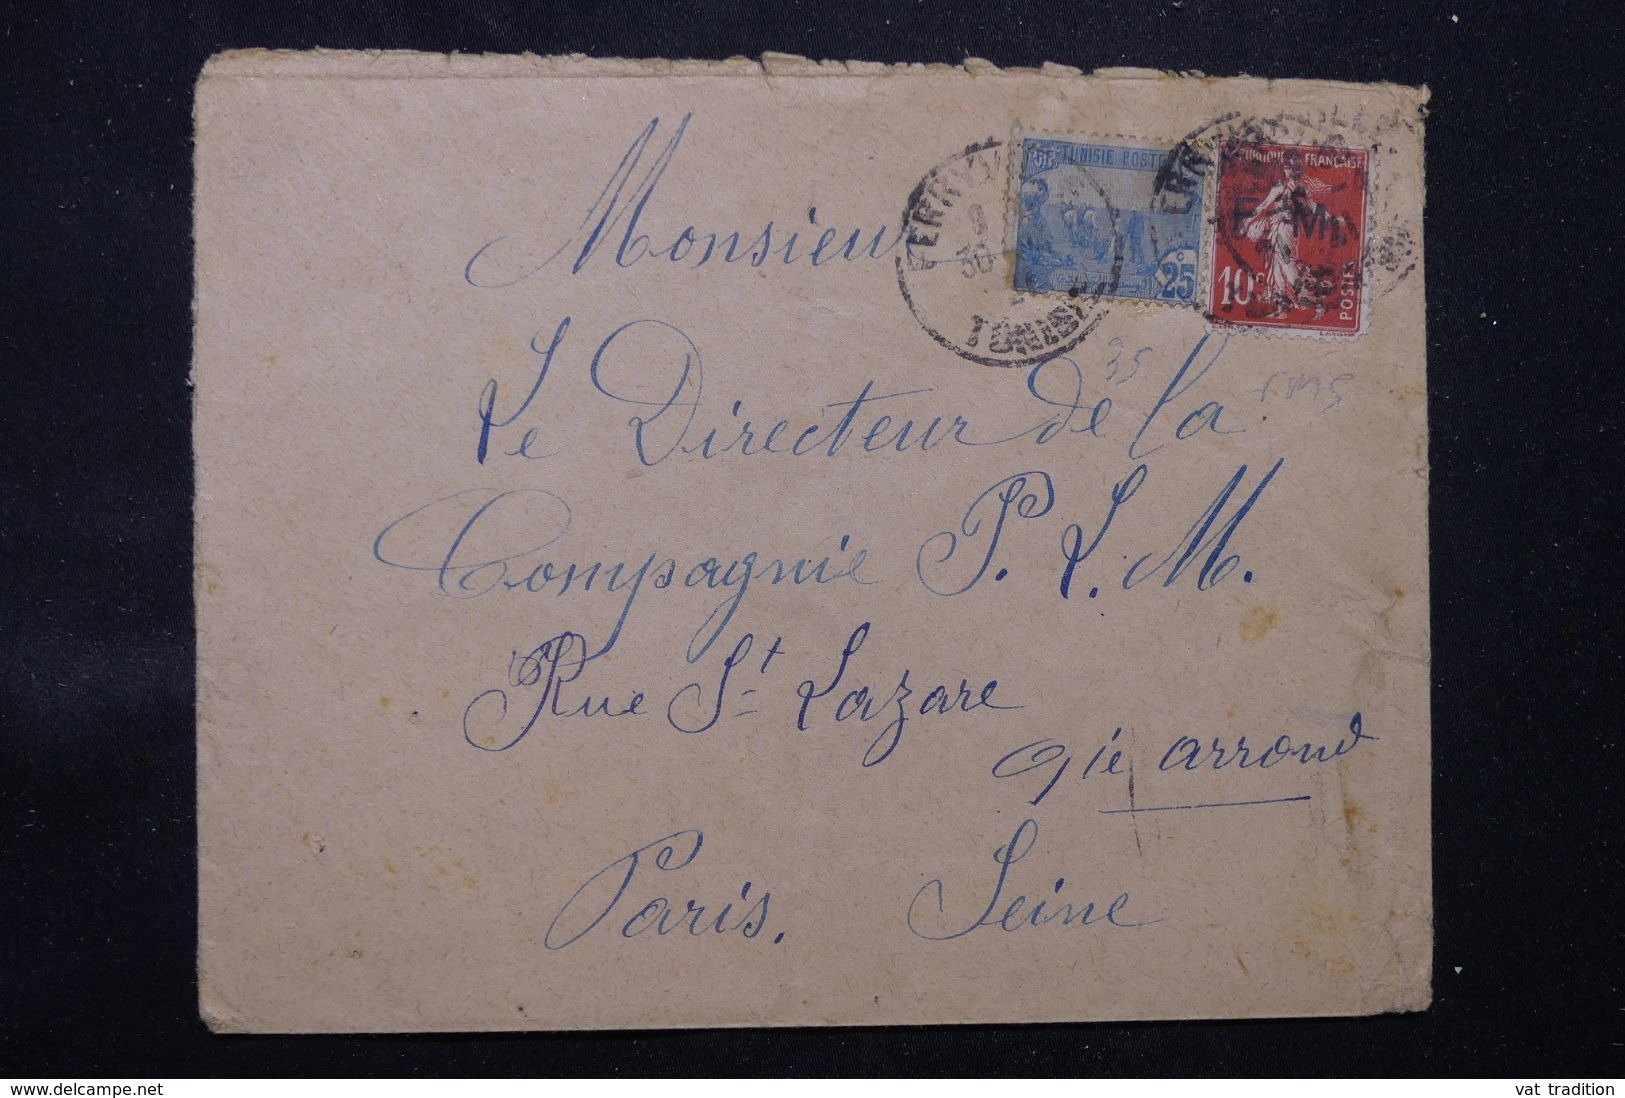 FERRYVILLE
30
TUNISIE
TUNISIE POSTES
25
RÉPUBLIQUE FRANÇAISE
F. M.
10 c
POSTES
35
Monsieur
Le Directeur de la
Compagnie P. L. M.
Rue St Lazare
9ie arrond
Paris. Seine
www.delcampe.net
vat tradition